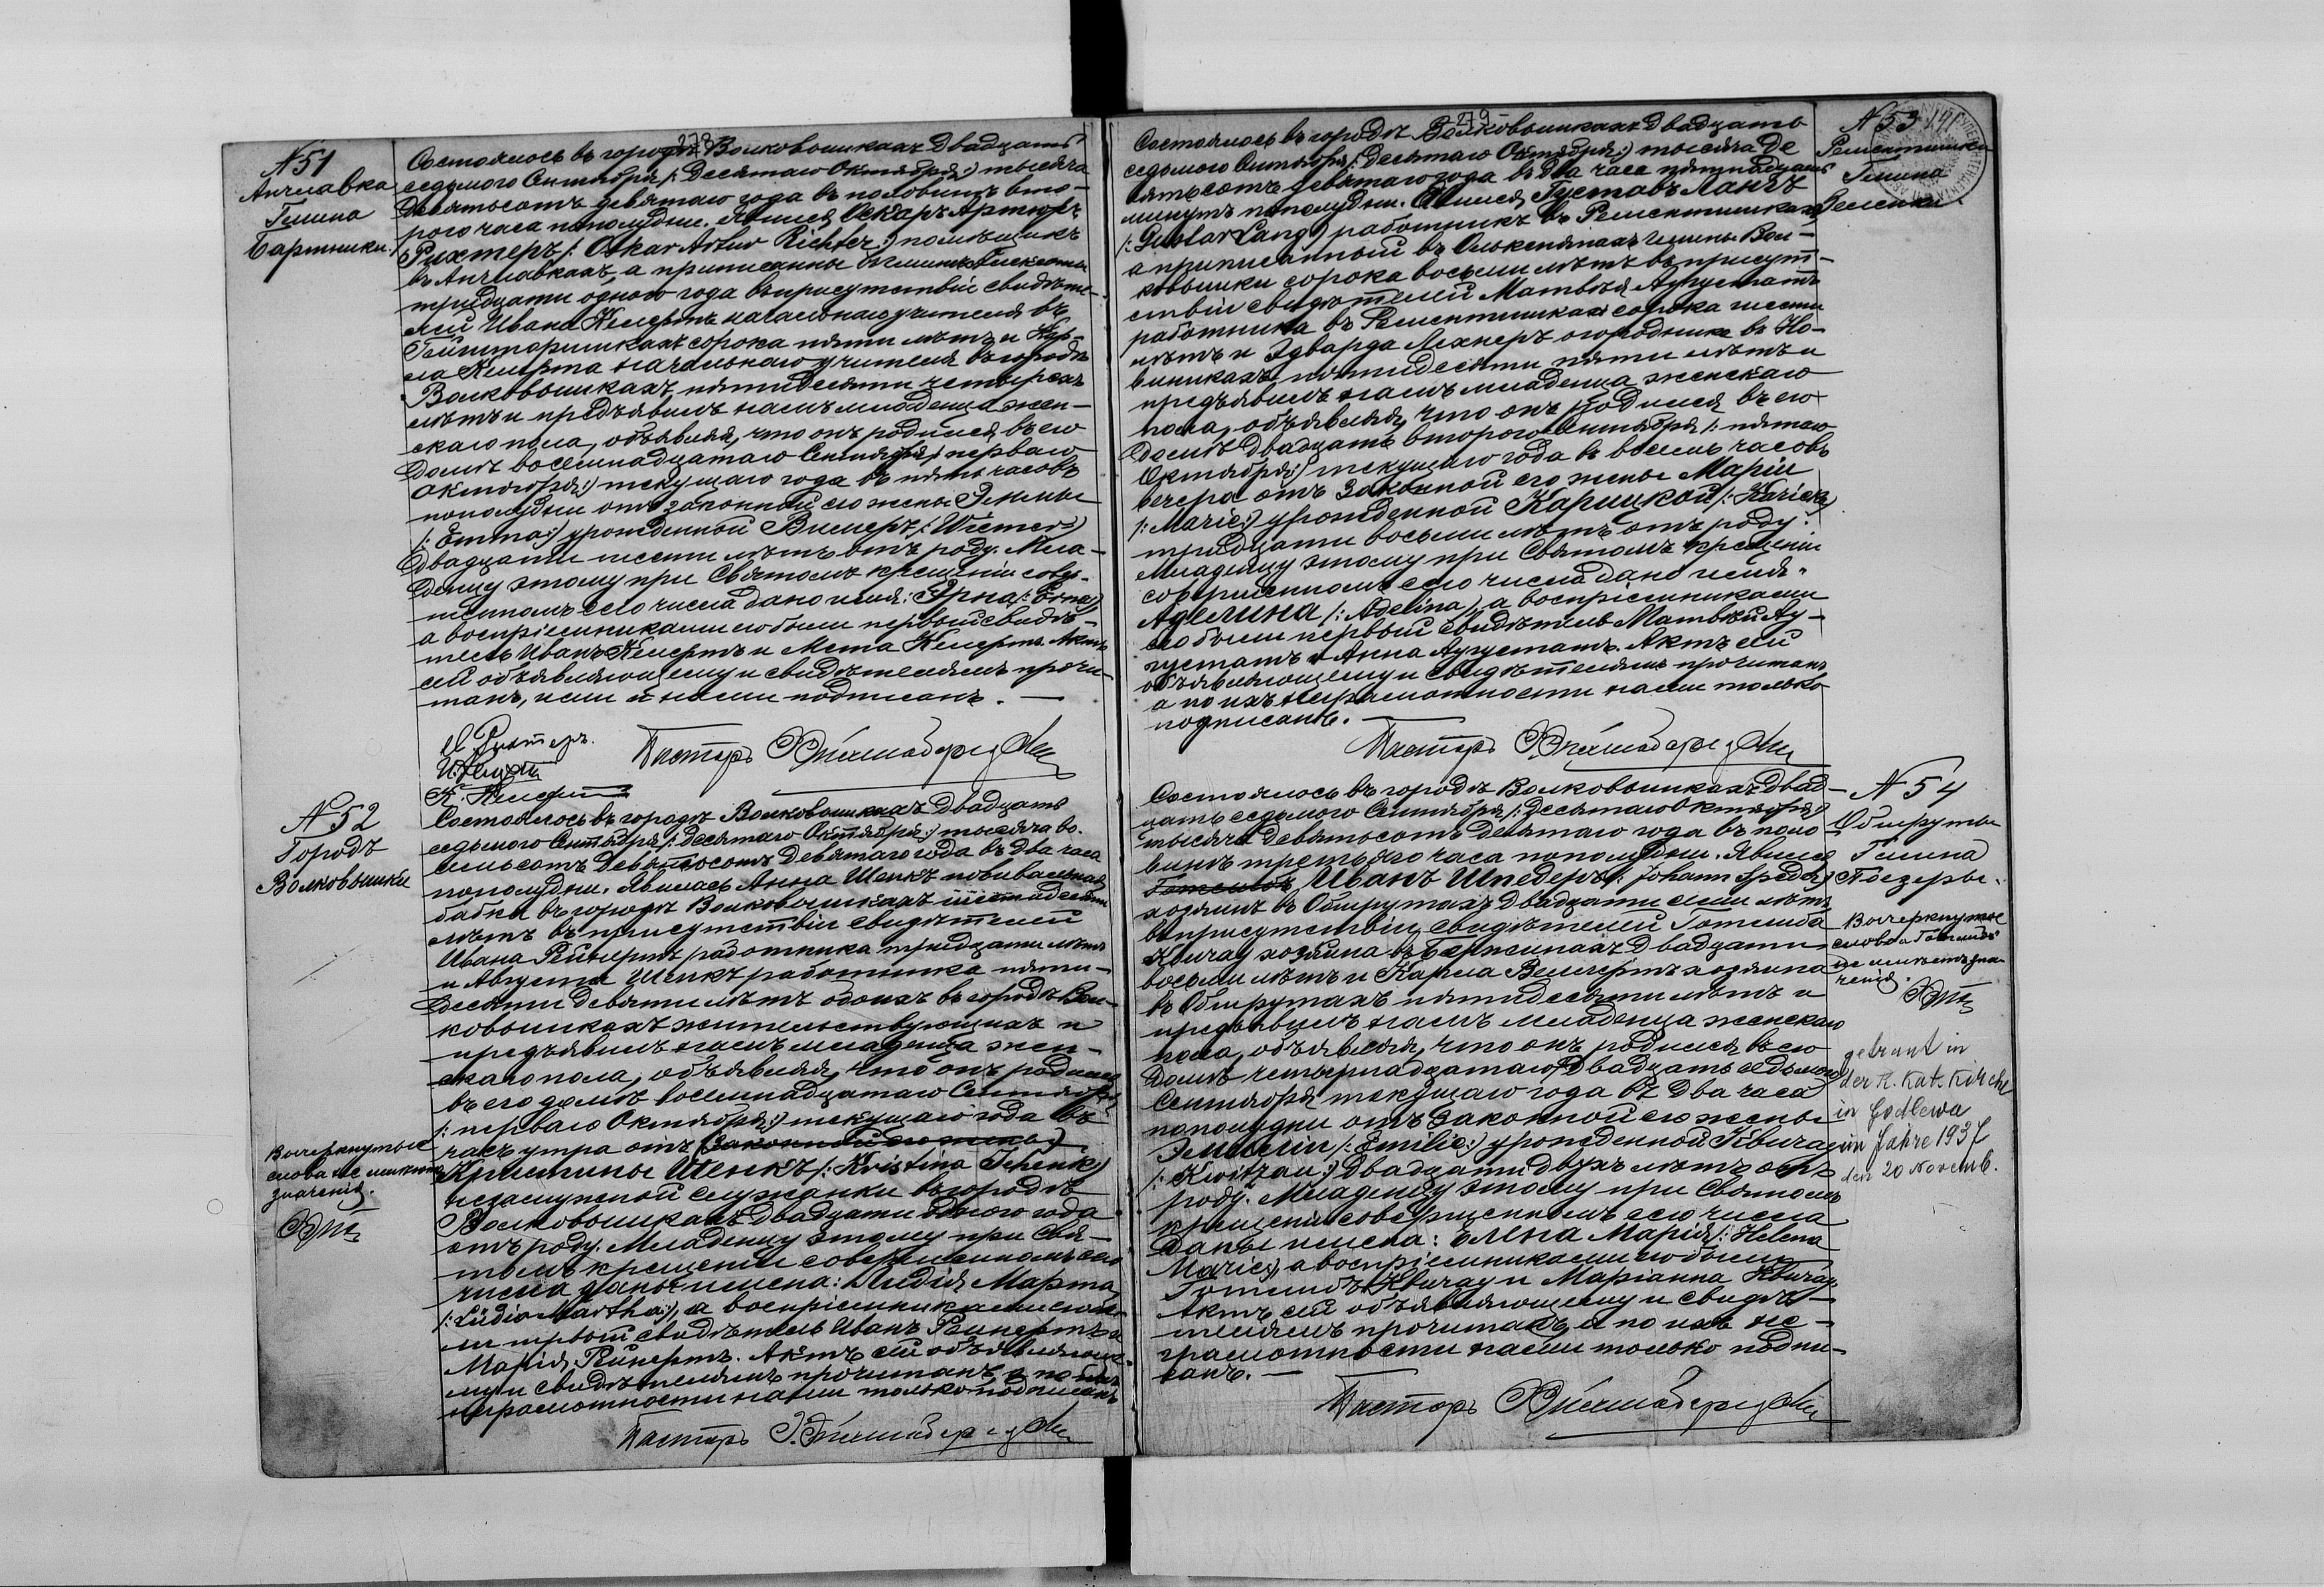 278
№ 51
Анчлавка
Гмина
Бартники.
Состоялось въ городѣ Волковышкахъ двадцать
седьмого Сентября /: десятаго Октября :/ тысяча
девятьсотъ девятаго года въ половинѣ вто-
рого часа пополудни. Явился Оскаръ Артюръ
Рихтеръ /: Oskar Artur Richter :/ помѣщикъ
въ Анчлавкахъ, а приписанный
тридцати одного года въ присутствіи свидѣте-
лей Ивана Келертъ начальнаго учителя въ
сорока пяти лѣтъ и Кар-
ла Келерта начальнаго учителя въ городѣ
Волковышкахъ, пятидесяти четырехъ
лѣтъ и предъявилъ намъ младенца жен-
скаго пола, объявляя, что онъ родился въ его
домѣ восемнадцатаго Сентября /: перваго
Октября :/ текущаго года въ пять часовъ
пополудни отъ законной его жены Эммы
/: Emma :/ урожденной Вимеръ /: Wiemer :/
двадцати шести лѣтъ отъ роду. Мла-
денцу этому при Святомъ крещеніи совер-
шенномъ сего числа дано имя: Эрна /: Erna :/
а воспріемниками его были первый свидѣ-
тель Иванъ Келертъ и Мета Келертъ. Актъ
сей объявляющему и свидѣтелямъ прочи-
танъ, ими и нами подписанъ. —
Рихтеръ.
К. Келертъ
Пасторъ
№ 52
Городъ
Волковышки
Состоялось въ городѣ Волковышкахъ двадцать
седьмого Сентября /: десятаго Октября :/ тысяча во-
семьсотъ девятьсотъ девятаго года въ два часа
пополудни. Явилась Анна Шенкъ повивальная
бабка въ городѣ Волковышкахъ шестидесяти
лѣтъ въ присутствіи свидѣтелей
Ивана Рейнертъ работника тридцати лѣтъ
и Августа Шенкъ работника пяти-
десяти девяти лѣтъ обоихъ въ городѣ Вол-
ковышкахъ жительствующихъ и
предъявилъ намъ младенца жен-
скаго пола, объявляя, что онъ родился
въ его домѣ восемнадцатаго Сентября
/: перваго Октября :/ текущаго года въ
часъ утра отъ (законной его жены)
Кристины Шенкъ /: Kristina Schenk :/
незамужной служанки въ городѣ
Волковышкахъ двадцати одного года
отъ роду. Младенцу этому при Свя-
томъ крещеніи совершенномъ сего
числа даны имена: Лидія Марта
/: Lüdia Martha :/, а воспріемниками его бы-
ли первый свидѣтель Иванъ Рейнертъ и
Марія Рейнертъ. Актъ сей объявляюще-
му и свидѣтелямъ прочитанъ, а по ихъ
неграмотности нами только подписанъ
Вычеркнутые
слова не имѣютъ
значенія.
Пасторъ
279
№ 53
Гмина
Состоялось въ городѣ Волковышкахъ двадцать
седьмого Сентября /: десятаго Октября :/ тысяча де
вятьсотъ девятаго года въ два часа пятнадцать
минутъ пополудни. Явился Густавъ Лангъ
/: Gustav Lang :/ работникъ въ
а приписанный въ гмины Вол-
ковышки сорока восьми лѣтъ въ присут-
ствіи свидѣтелей Матвѣя Аугустатъ
работника въ сорока шести
лѣтъ и Эдварда Лехнеръ огородника въ Но-
виникахъ пятидесяти пяти лѣтъ и
предъявилъ намъ младенца женскаго
пола, объявляя, что онъ родился въ его
домѣ двадцать второго Сентября /: пятаго
Октября :/ текущаго года въ восемь часовъ
вечера отъ законной его жены Маріи
/: Marie :/ урожденной Карицкой
тридцати восьми лѣтъ отъ роду.
Младенцу этому при Святомъ крещеніи
совершенномъ сего числа дано имя:
Аделина /: Adelina :/, а воспріемниками
его были первый свидѣтель Матвѣй Ау-
густатъ и Анна Аугустатъ. Актъ сей
объявляющему и свидѣтелямъ прочитанъ
а по ихъ неграмотности нами только
подписанъ. —
Пасторъ
№ 54
Обшруты
Гмина
Поезеры.
Состоялось въ городѣ Волковышкахъ двад-
цать седьмого Сентября /: десятаго Октября :/
тысяча девятьсотъ девятаго года въ поло
винѣ третьяго часа пополудни. Явился
Готлибъ Иванъ Шпедеръ /: Johann
хозяинъ въ Обшрутахъ двадцати семи лѣтъ
въ присутствіи свидѣтелей Готлиба
Квичау хозяина въ двадцати
восьми лѣтъ и Карла хозяина
въ Обшрутахъ пятидесяти лѣтъ и
предъявилъ намъ младенца женскаго
пола, объявляя, что онъ родился въ его
домѣ четырнадцатаго /: двадцать седьмого
Сентября текущаго года въ два часа
пополудни отъ законной его жены
Эмиліи /: Emilie :/ урожденной Квичау
/: Kwitzau :/ двадцати двухъ лѣтъ отъ
роду. Младенцу этому при Святомъ
крещеніи совершенномъ сего числа
даны имена: Елена Марія /: Helena
Marie :/, а воспріемниками его были
Готлибъ Квичау и Маріанна Квичау.
Актъ сей объявляющему и свидѣ-
телямъ прочитанъ, а по ихъ не-
грамотности нами только подпи-
санъ. —
Вычеркнутое
слово „Готлибъ"
не имѣетъ зна-
ченія.
getraut in
der R. Kat. Kirche
in Godlewa
im Jahre 1937
den 20 Novemb.
Пасторъ